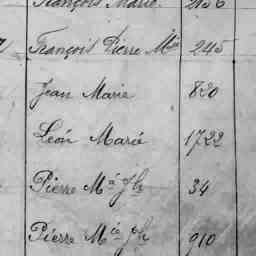 François Marie. 2156
François Pierre Mie 245
Jean Marie 820
Léon Marie 1722
Pierre Ma Jh 34
Pierre Mie Jh 910